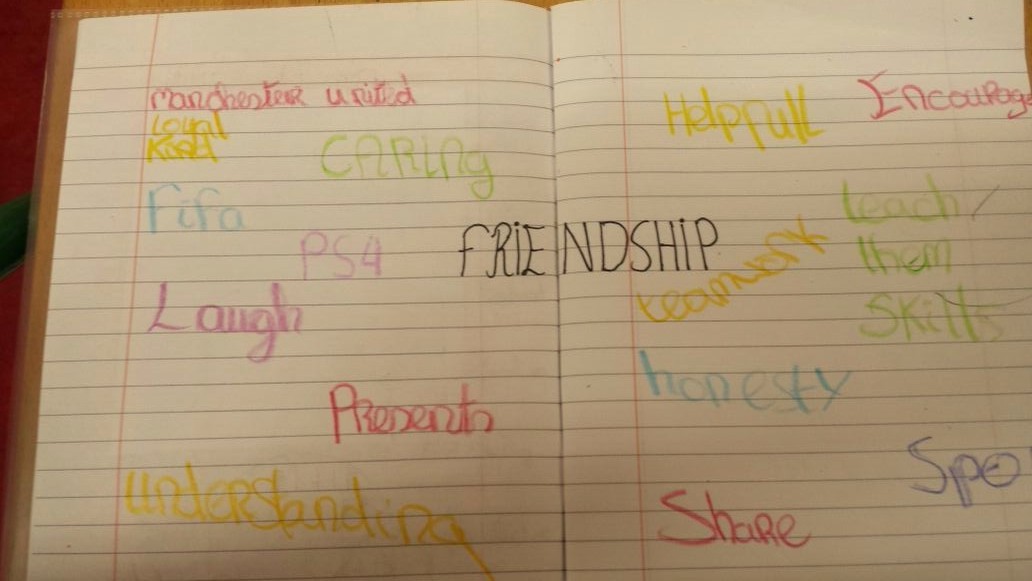 Manchester united
Loyal
Kind
CARing
Fifa
PS4
Laugh
Presents
understanding
FRIENDSHIP
Helpfull
Encourag
teach
them
skills
teamwork
honesty
Spo
Share